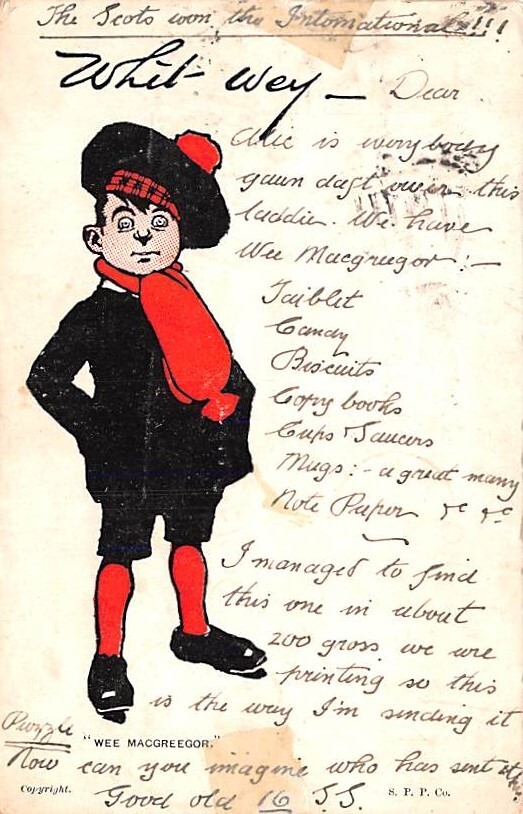 The Scots won the International!!!
Whit wey — Dear
Alic is everybody
gaun daft ower this
laddie. We have
Wee Macgreegor:—
Taiblet
Candy
Biscuits
Copy books
Cups & Saucers
Mugs:- a great many
Note Paper &c &c
I managed to find
this one in about
200 gross we are
printing so this
is the way I'm sending it
Puzzle
"WEE MACGREEGOR."
Now can you imagine who has sent it
Copyright.
Good old 16 S.S.
S. P. P. Co.